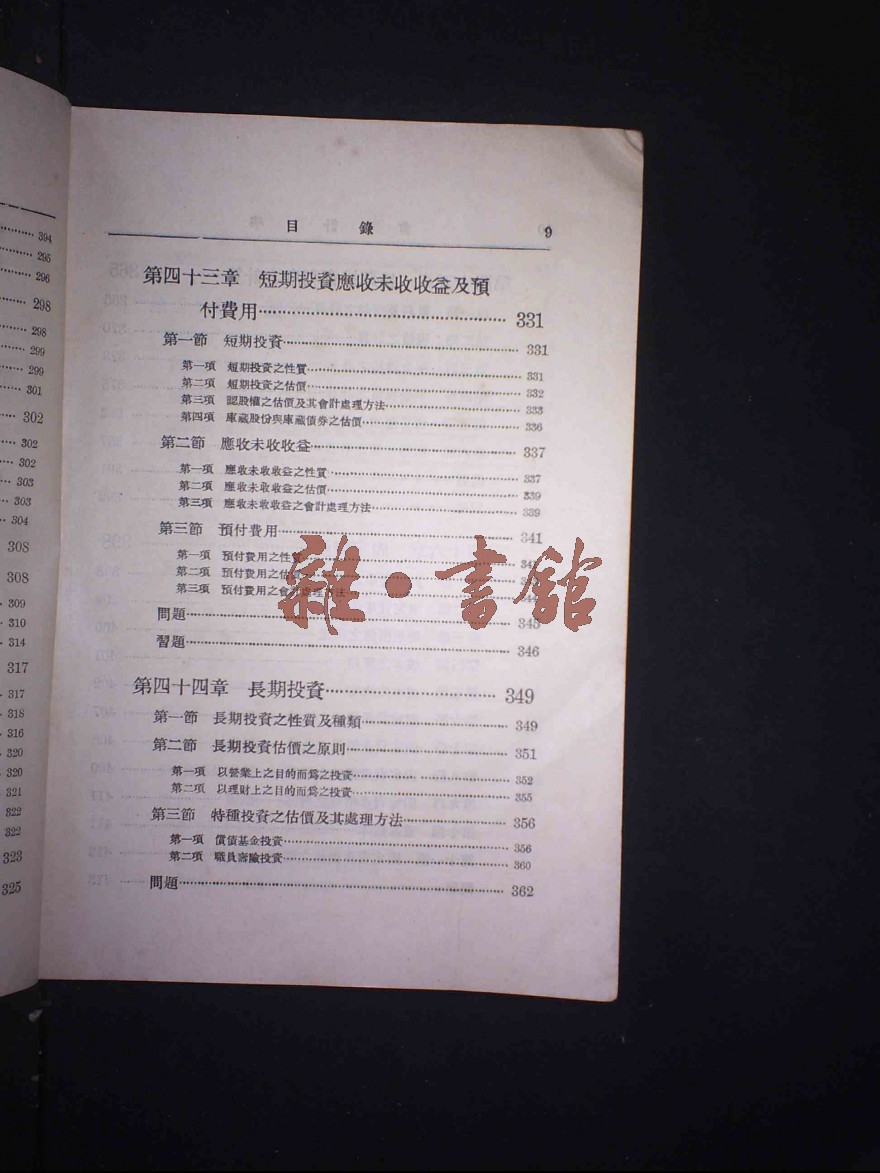 394
295
296
298
298
299
299
301
302
302
302
303
303
304
308
308
309
310
314
317
317
318
316
320
320
321
322
322
323
325
目錄 9
第四十三章 短期投資應收未收收益及預
付費用 331
第一節 短期投資 331
第一項 短期投資之性質 331
第二項 短期投資之估價 332
第三項 認股權之估價及其會計處理方法 333
第四項 庫藏股份與庫藏債券之估價 336
第二節 應收未收收益 337
第一項 應收未收收益之性質 337
第二項 應收未收收益之估價 339
第三項 應收未收收益之會計處理方法 339
第三節 預付費用 341
第一項 預付費用之性
第二項 預付費用之估
第三項 預付費用之會計處理方法
問題 345
習題 346
雜·書館
第四十四章 長期投資 349
第一節 長期投資之性質及種類 349
第二節 長期投資估價之原則 351
第一項 以營業上之目的而爲之投資 352
第二項 以理財上之目的而爲之投資 355
第三節 特種投資之估價及其處理方法 356
第一項 償債基金投資 356
第二項 職員壽險投資 360
問題 362